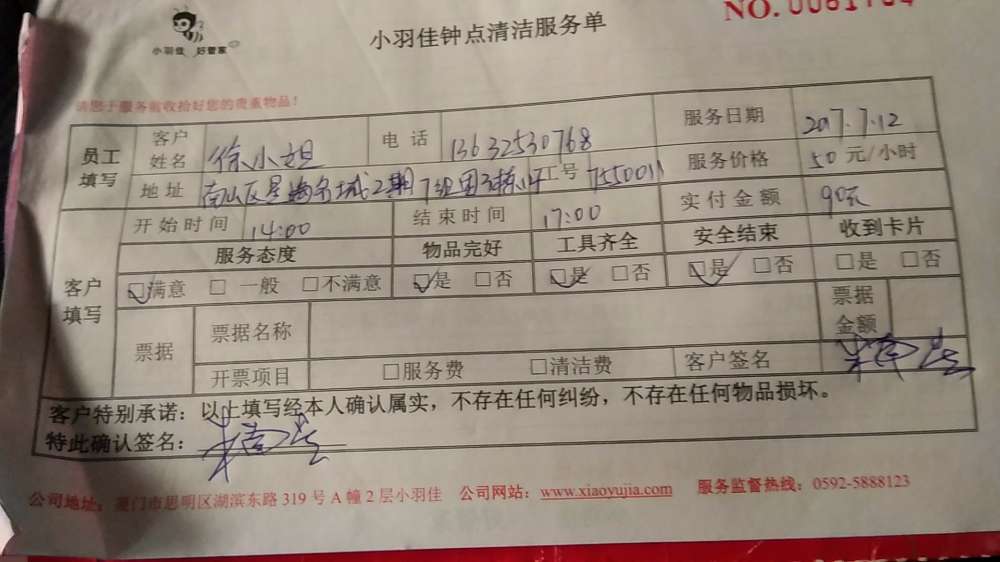 小羽佳 好管家
小羽佳钟点清洁服务单
NO.
请您于服务前收拾好您的贵重物品！
员工填写 客户姓名 徐小姐 电话 13632530768 服务日期 2017.7.12
地址 南山区星海名城2期7组团 工号 7550011 服务价格 50元/小时
开始时间 14:00 结束时间 17:00 实付金额 90元
客户填写 服务态度 物品完好 工具齐全 安全结束 收到卡片
☑满意 □一般 □不满意 ☑是 □否 ☑是 □否 ☑是 □否 □是 □否
票据 票据名称 票据金额
开票项目 □服务费 □清洁费 客户签名
客户特别承诺：以上填写经本人确认属实，不存在任何纠纷，不存在任何物品损坏。
特此确认签名：
公司地址：厦门市思明区湖滨东路319号A幢2层小羽佳 公司网站：www.xiaoyujia.com 服务监督热线：0592-5888123